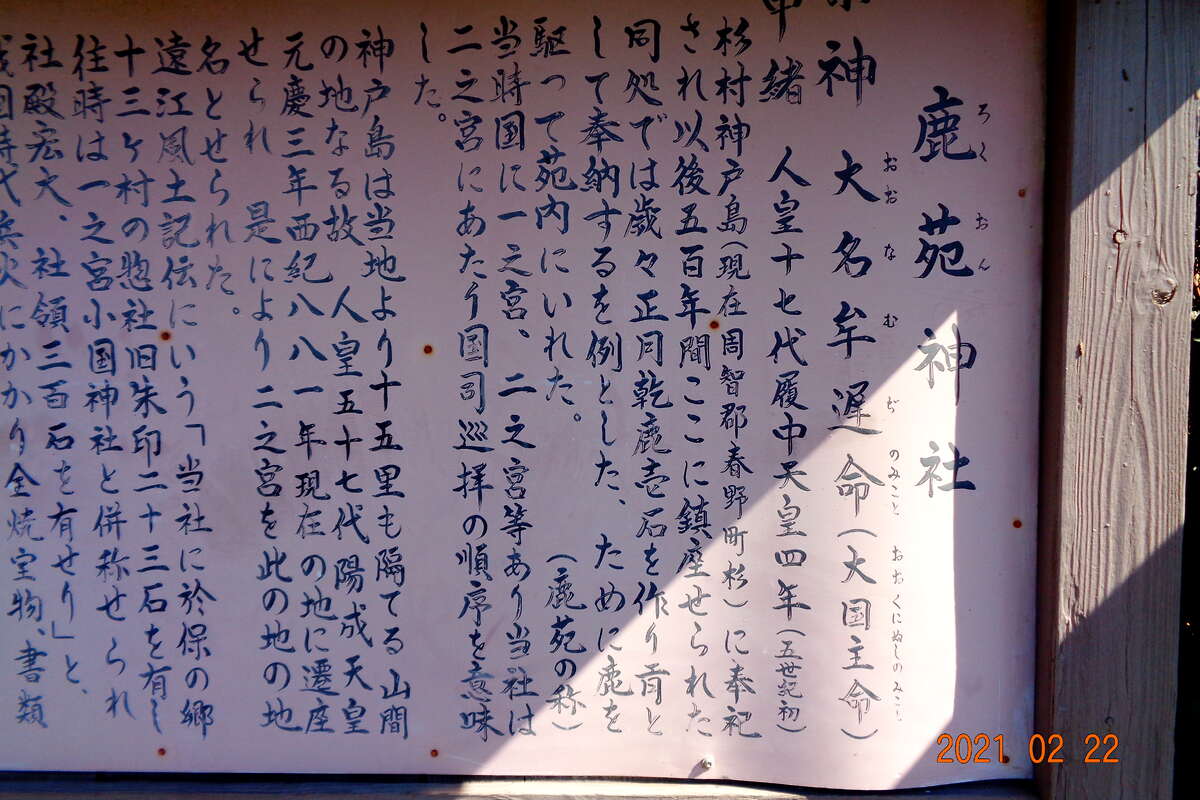 鹿苑神社
ろくおん
神 大名牟遅命(大国主命)
おおなむぢのみこと おおくにぬしのみこと
緒 人皇十七代履中天皇四年(五世紀初)
杉村神戸島(現在周智郡春野町杉)に奉祀
され以後五百年間ここに鎮座せられた
同処では歳々正月乾鹿壱石を作り
して奉納するを例とした、ために鹿を
駆って苑内にいれた。 (鹿苑の称)
当時国に一之宮、二之宮等あり当社は
二之宮にあたり国司巡拝の順序を意味
した。
神戸島は当地より十五里も隔てる山間
の地なる故 人皇五十七代陽成天皇
元慶三年西紀八八一年現在の地に遷座
せられ 是により二之宮を此の地の地
名とせられた。
遠江風土記伝にいう「当社に於保の郷
十三ヶ村の惣社旧朱印二十三石を有し
往時は一之宮小国神社と併称せられ
社殿宏大、社領三百石を有せり」と、
戦国時代兵火にかかり全焼宝物、書類
2021 02 22